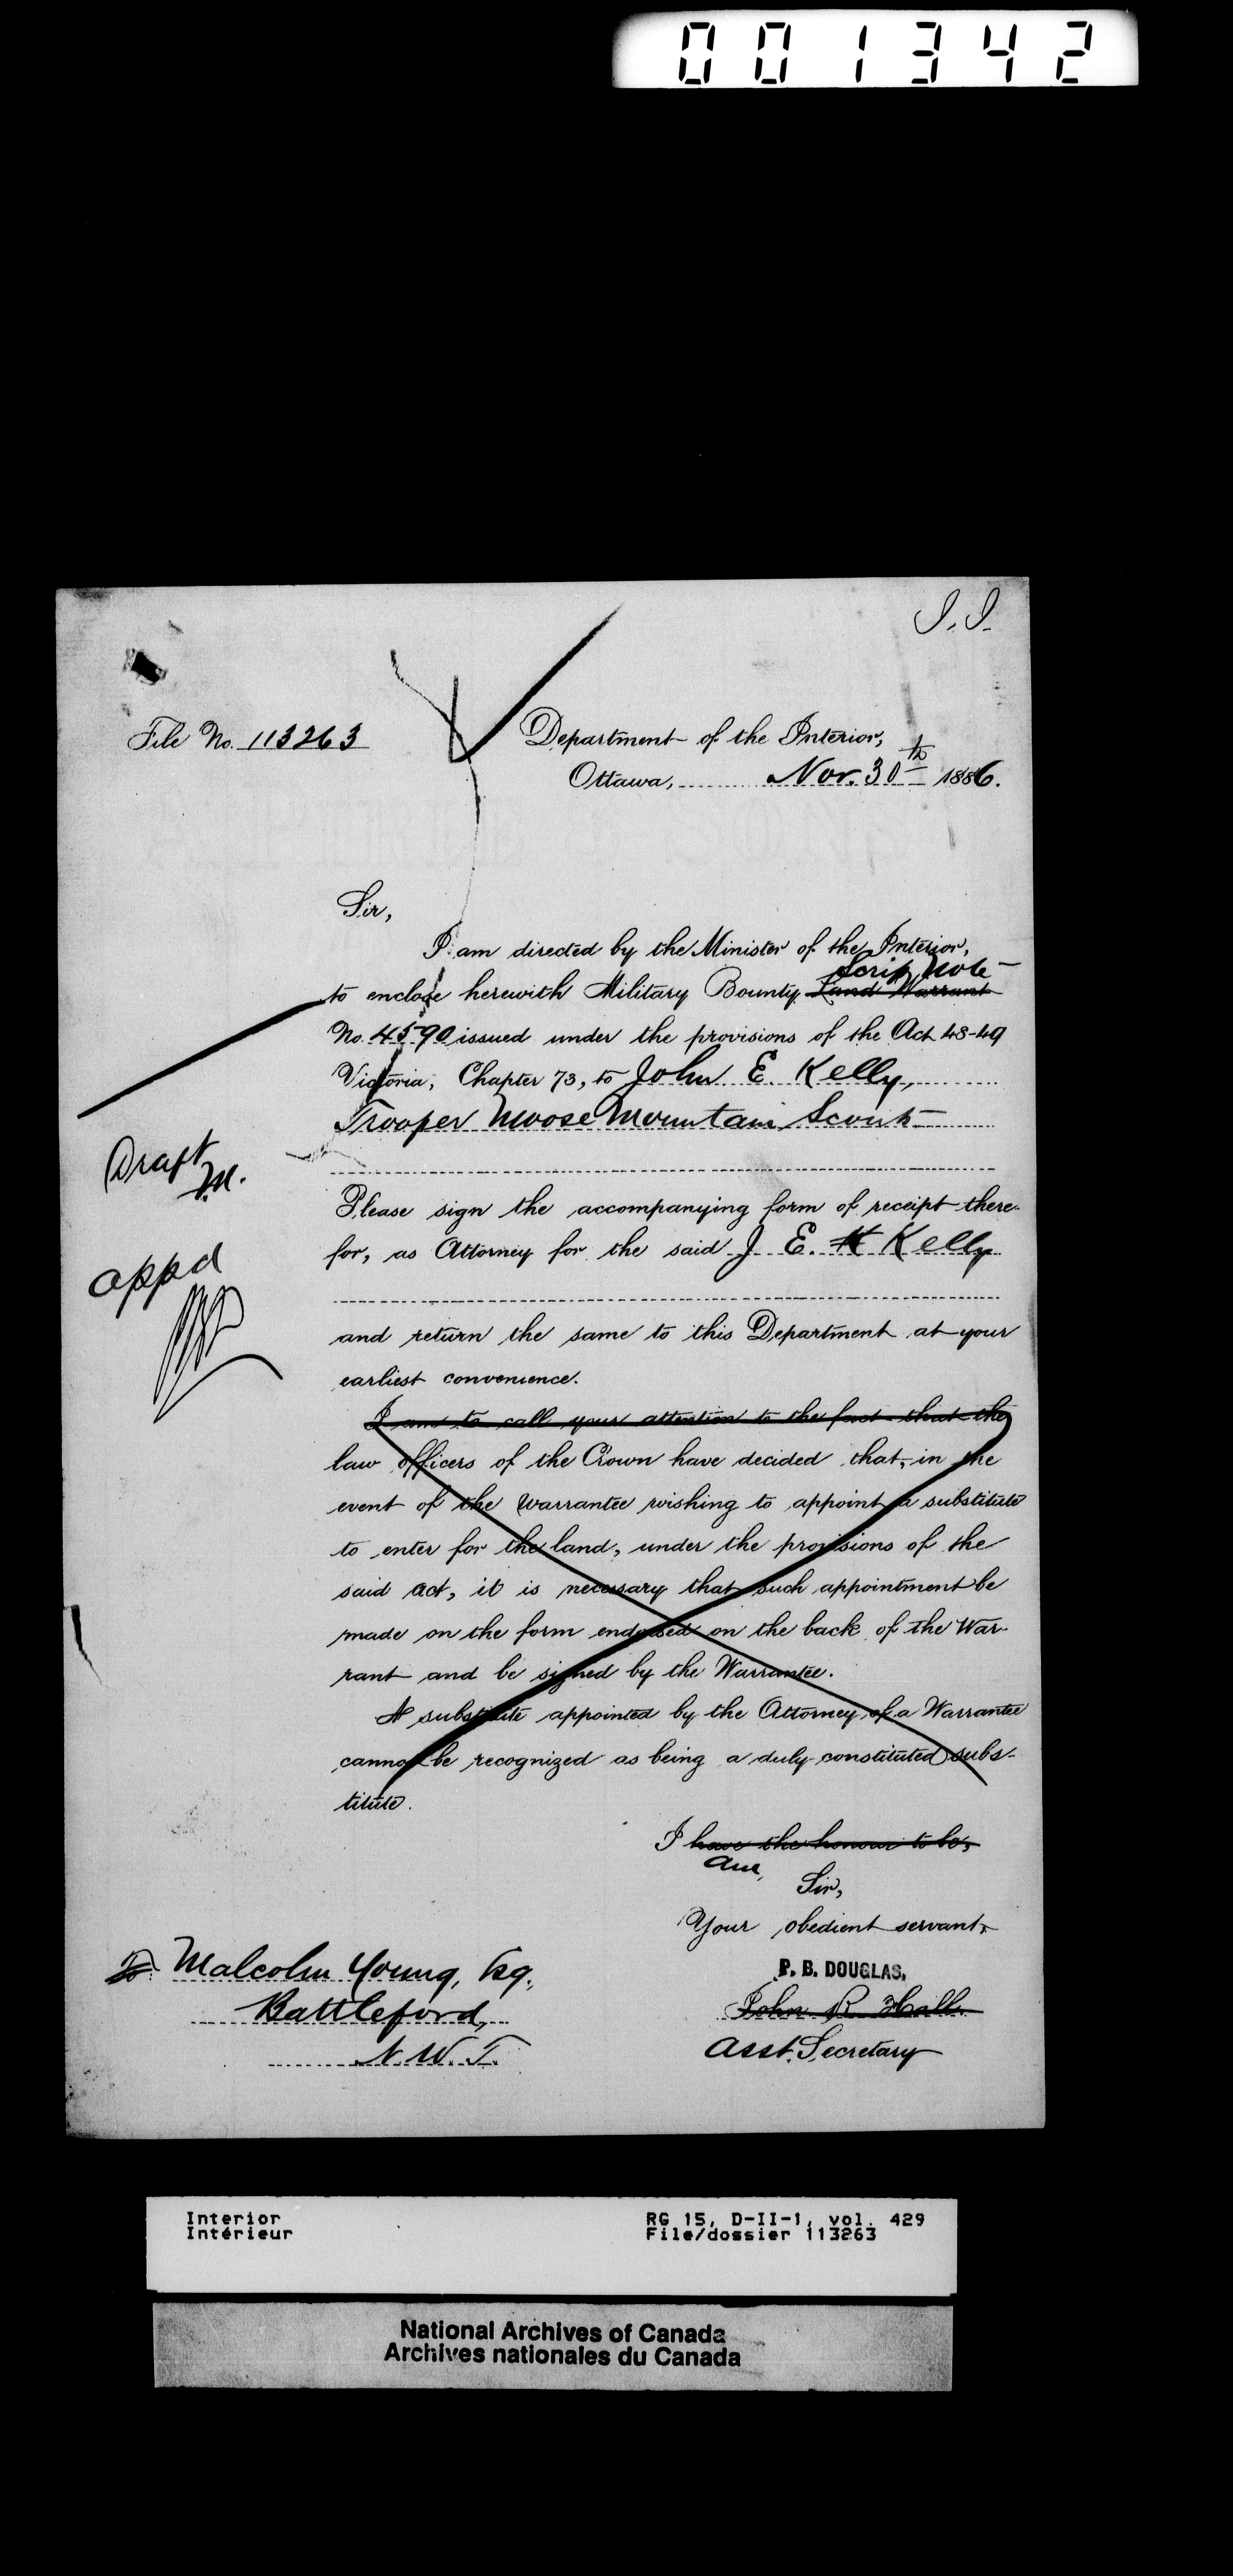 001342
J. J.
File No. 113263
Department of the Interior,
Ottawa, Nov. 30th 1886.
Sir,
I am directed by the Minister of the Interior,
Scrip Note
to enclose herewith Military Bounty Land Warrant
No. 4590 issued under the provisions of the Act 48-49
Victoria, Chapter 73, to John E. Kelly,
Trooper Moose Mountain Scouts
Draft
Please sign the accompanying form of receipt there-
for, as Attorney for the said J. E. K Kelly
appd
and return the same to this Department at your
earliest convenience.
I am to call your attention to the fact that the
law officers of the Crown have decided that, in the
event of the Warrantee wishing to appoint a substitute
to enter for the land, under the provisions of the
said Act, it is necessary that such appointment be
made on the form endorsed on the back of the War-
rant and be signed by the Warrantee.
A substitute appointed by the Attorney of a Warrantee
cannot be recognized as being a duly constituted subs-
titute.
I have the honour to be,
am,
Sir,
Your obedient servant,
To Malcolm Young, Esq.,
Battleford,
N. W. T.
P. B. DOUGLAS,
John R Hall
Asst. Secretary
Interior
Intérieur
RG 15, D-II-1, vol. 429
File/dossier 113263
National Archives of Canada
Archives nationales du Canada